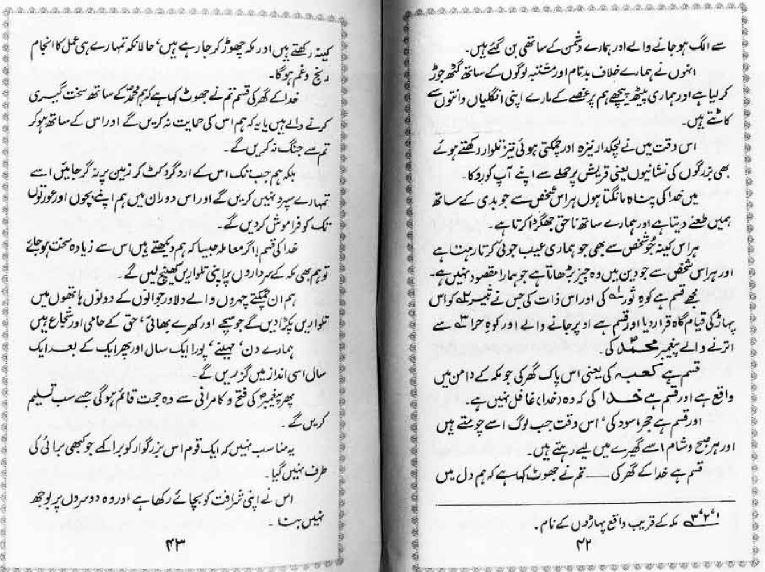 سے الگ ہو جانے والے اور ہمارے دشمن کے ساتھی بن گئے ہیں۔
انہوں نے ہمارے خلاف بدنام اور مشتبہ لوگوں کے ساتھ گٹھ جوڑ
کر لیا ہے اور ہماری پیٹھ پیچھے ہم پر غصے کے مارے اپنی انگلیاں دانتوں سے
کاٹتے ہیں۔
اس وقت میں نے لچکدار نیزہ اور چمکتی ہوئی تیز تلوار رکھتے ہوئے
بھی بزرگوں کی نشانیوں یعنی قریش پر حملے سے اپنے آپ کو روکا۔
میں خدا کی پناہ مانگتا ہوں ہر اس شخص سے جو بدی کے ساتھ
ہمیں طعنے دیتا ہے اور ہمارے ساتھ ناحق جھگڑا کرتا ہے۔
ہر اس کینہ جو شخص سے بھی جو ہماری عیب جوئی کرتا رہتا ہے
اور ہر اس شخص سے جو دین میں وہ چیز بڑھاتا ہے جو ہمارا مقصود نہیں ہے۔
مجھے قسم ہے کوہ ثور۱ کی اور اس ذات کی جس نے ثبیر۲ کو اس
پہاڑ کی قیام گاہ قرار دیا اور قسم ہے اوپر جانے والے اور کوہ حرا۳ سے
اترنے والے پیغمبر محمدؐ کی۔
قسم ہے کعبہ کی یعنی اس پاک گھر کی جو مکہ کے دامن میں
واقع ہے اور قسم ہے خدا کی کہ وہ (خدا) غافل نہیں ہے۔
اور قسم ہے حجر اسود کی، اس وقت جب لوگ اسے چومتے ہیں
اور ہر صبح و شام اسے گھیرے میں لیے رہتے ہیں۔
قسم ہے خدا کے گھر کی ـــــ تم نے جھوٹ کہا ہے کہ ہم دل میں
۱، ۲، ۳ مکہ کے قریب واقع پہاڑوں کے نام۔
۴۲
کینہ رکھتے ہیں اور مکہ چھوڑ کر جا رہے ہیں، حالانکہ تمہارے ہی عمل کا انجام
رنج و غم ہو گا۔
خدا کے گھر کی قسم تم نے جھوٹ کہا ہے کہ ہم محمدؐ کے ساتھ سخت گیری
کرنے والے ہیں یا یہ کہ ہم اس کی حمایت نہ کریں گے اور اس کے ساتھ ہو کر
تم سے جنگ نہ کریں گے۔
بلکہ ہم جب تک اس کے ارد گرد کٹ کر زمین پر نہ گر جائیں اسے
تمہارے سپرد نہیں کریں گے اور اس دوران میں ہم اپنے بچوں اور عورتوں
تک کو فراموش کر دیں گے۔
خدا کی قسم! اگر معاملہ جیسا کہ ہم دیکھتے ہیں اس سے زیادہ سخت ہو جائے
تو ہم بھی مکہ کے سرداروں پر اپنی تلواریں کھینچ لیں گے۔
ہم ان چمکتے چہروں والے دلاور جوانوں کے دونوں ہاتھوں میں
تلواریں پکڑا دیں گے جو سچے اور کھرے بھائی، حق کے حامی اور شجاع ہیں
ہمارے دن، مہینے، پورا ایک سال اور پھر ایک کے بعد ایک
سال اسی انداز میں گزریں گے۔
پھر پیغمبرؐ کی فتح و کامرانی سے وہ حجت قائم ہو گی جسے سب تسلیم
کریں گے۔
یہ مناسب نہیں کہ ایک قوم اس بزرگوار کو برا کہے جو کبھی برائی کی
طرف نہیں گیا۔
اس نے اپنی شرافت کو بچائے رکھا ہے اور وہ دوسروں پر بوجھ
نہیں بنتا۔
۴۳